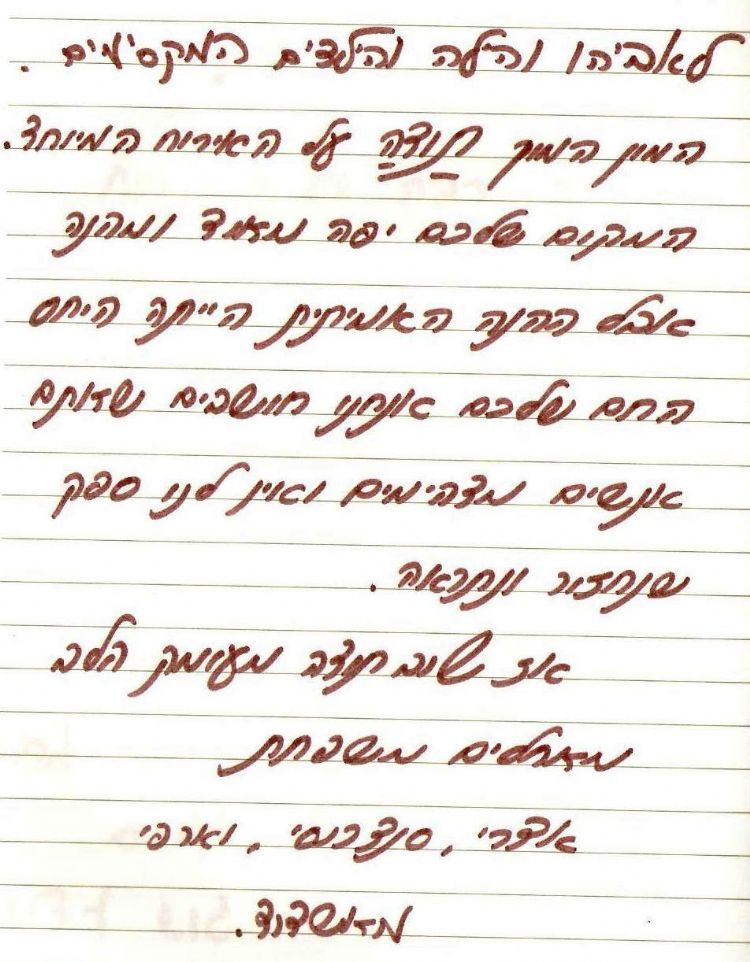 לאביהו והילה והילדים המקסימים.
המון המון תודה על האירוח המיוחד.
המקום שלכם יפה מאוד ומהנה
אבל ההנה האמיתית הייתה היחס
החם שלכם אנחנו חושבים שאתם
אנשים מדהימים ואין לנו ספק
שנחזור ונתראה.
אז שוב תודה מעומק הלב
מאחלים משפחת
אדרי, סנדרוסי, וארפי
מאשדוד.